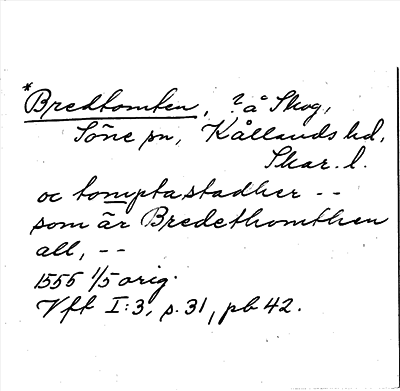 *Bredtomten, ? å Skog,
Söne sn, Kållands hd,
Skar. l.
oc tomptastadher --
som är Bredethomthen
all, --
1556 1/5 orig.
Vft I:3, s. 31, pb 42.